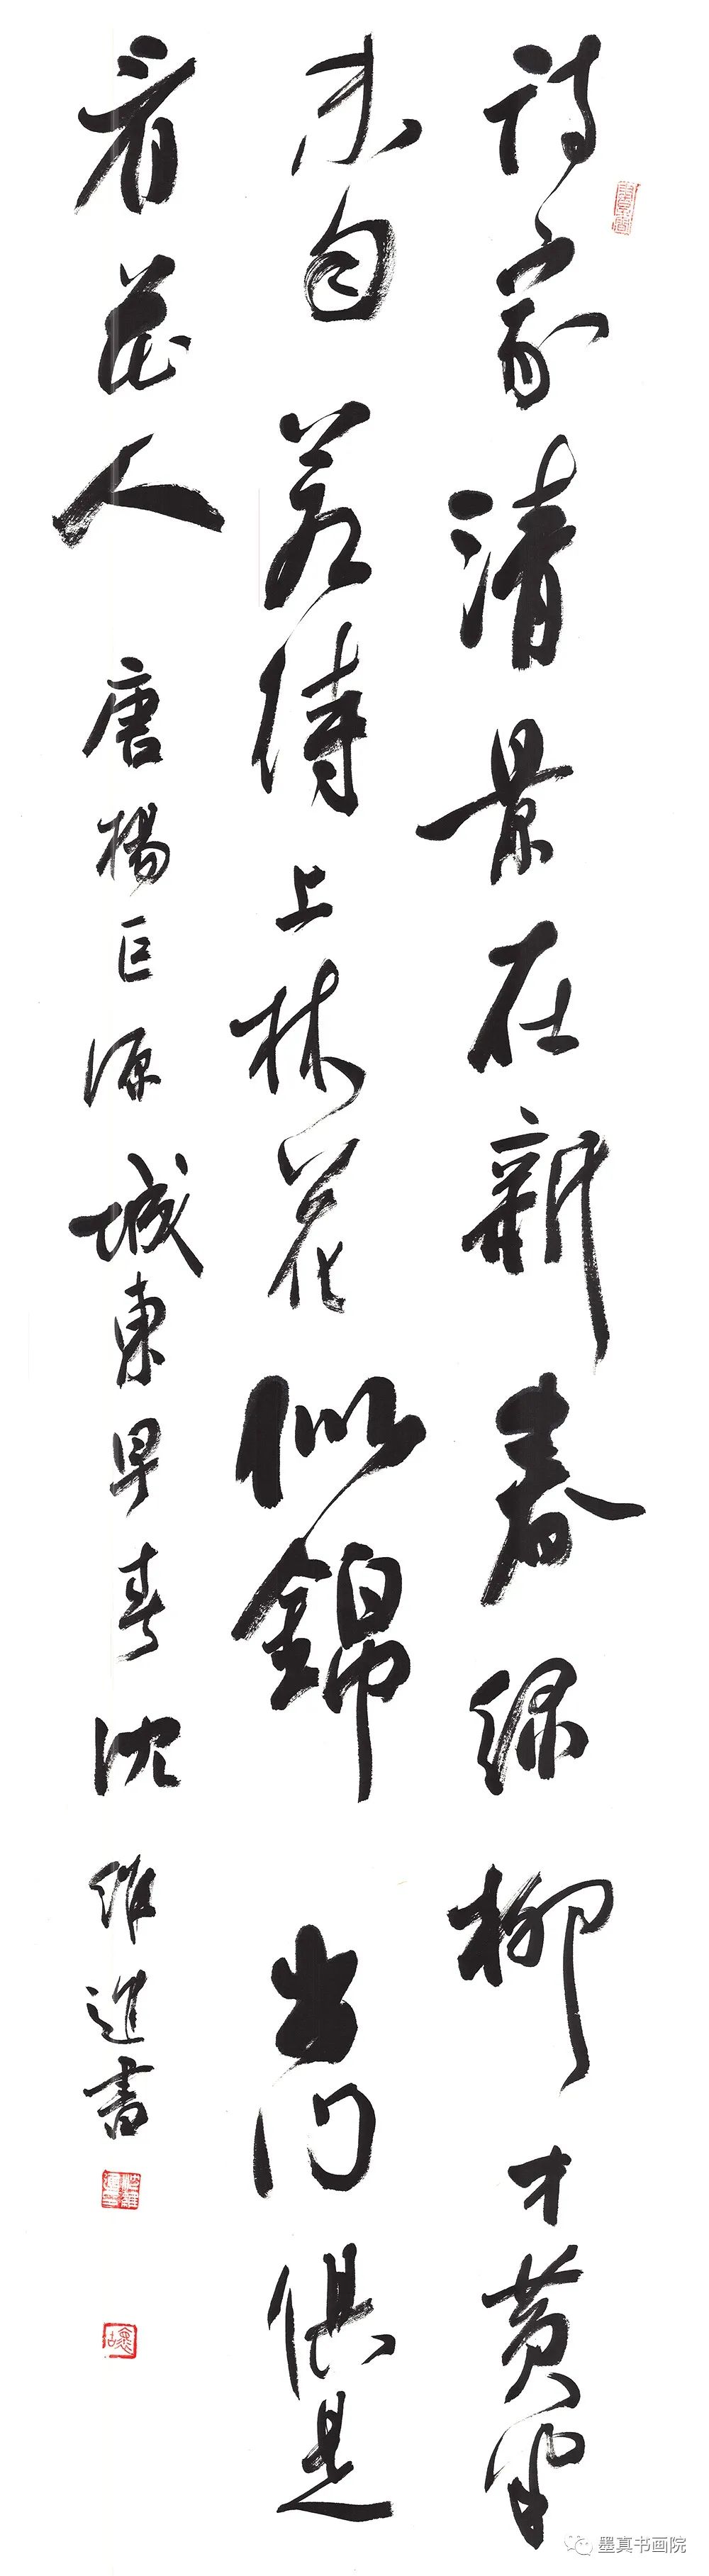 詩家清景在新春綠柳才黃半
未勻若待上林花似錦出門俱是
看花人 唐楊巨源城東早春 沈維進書
墨真书画院